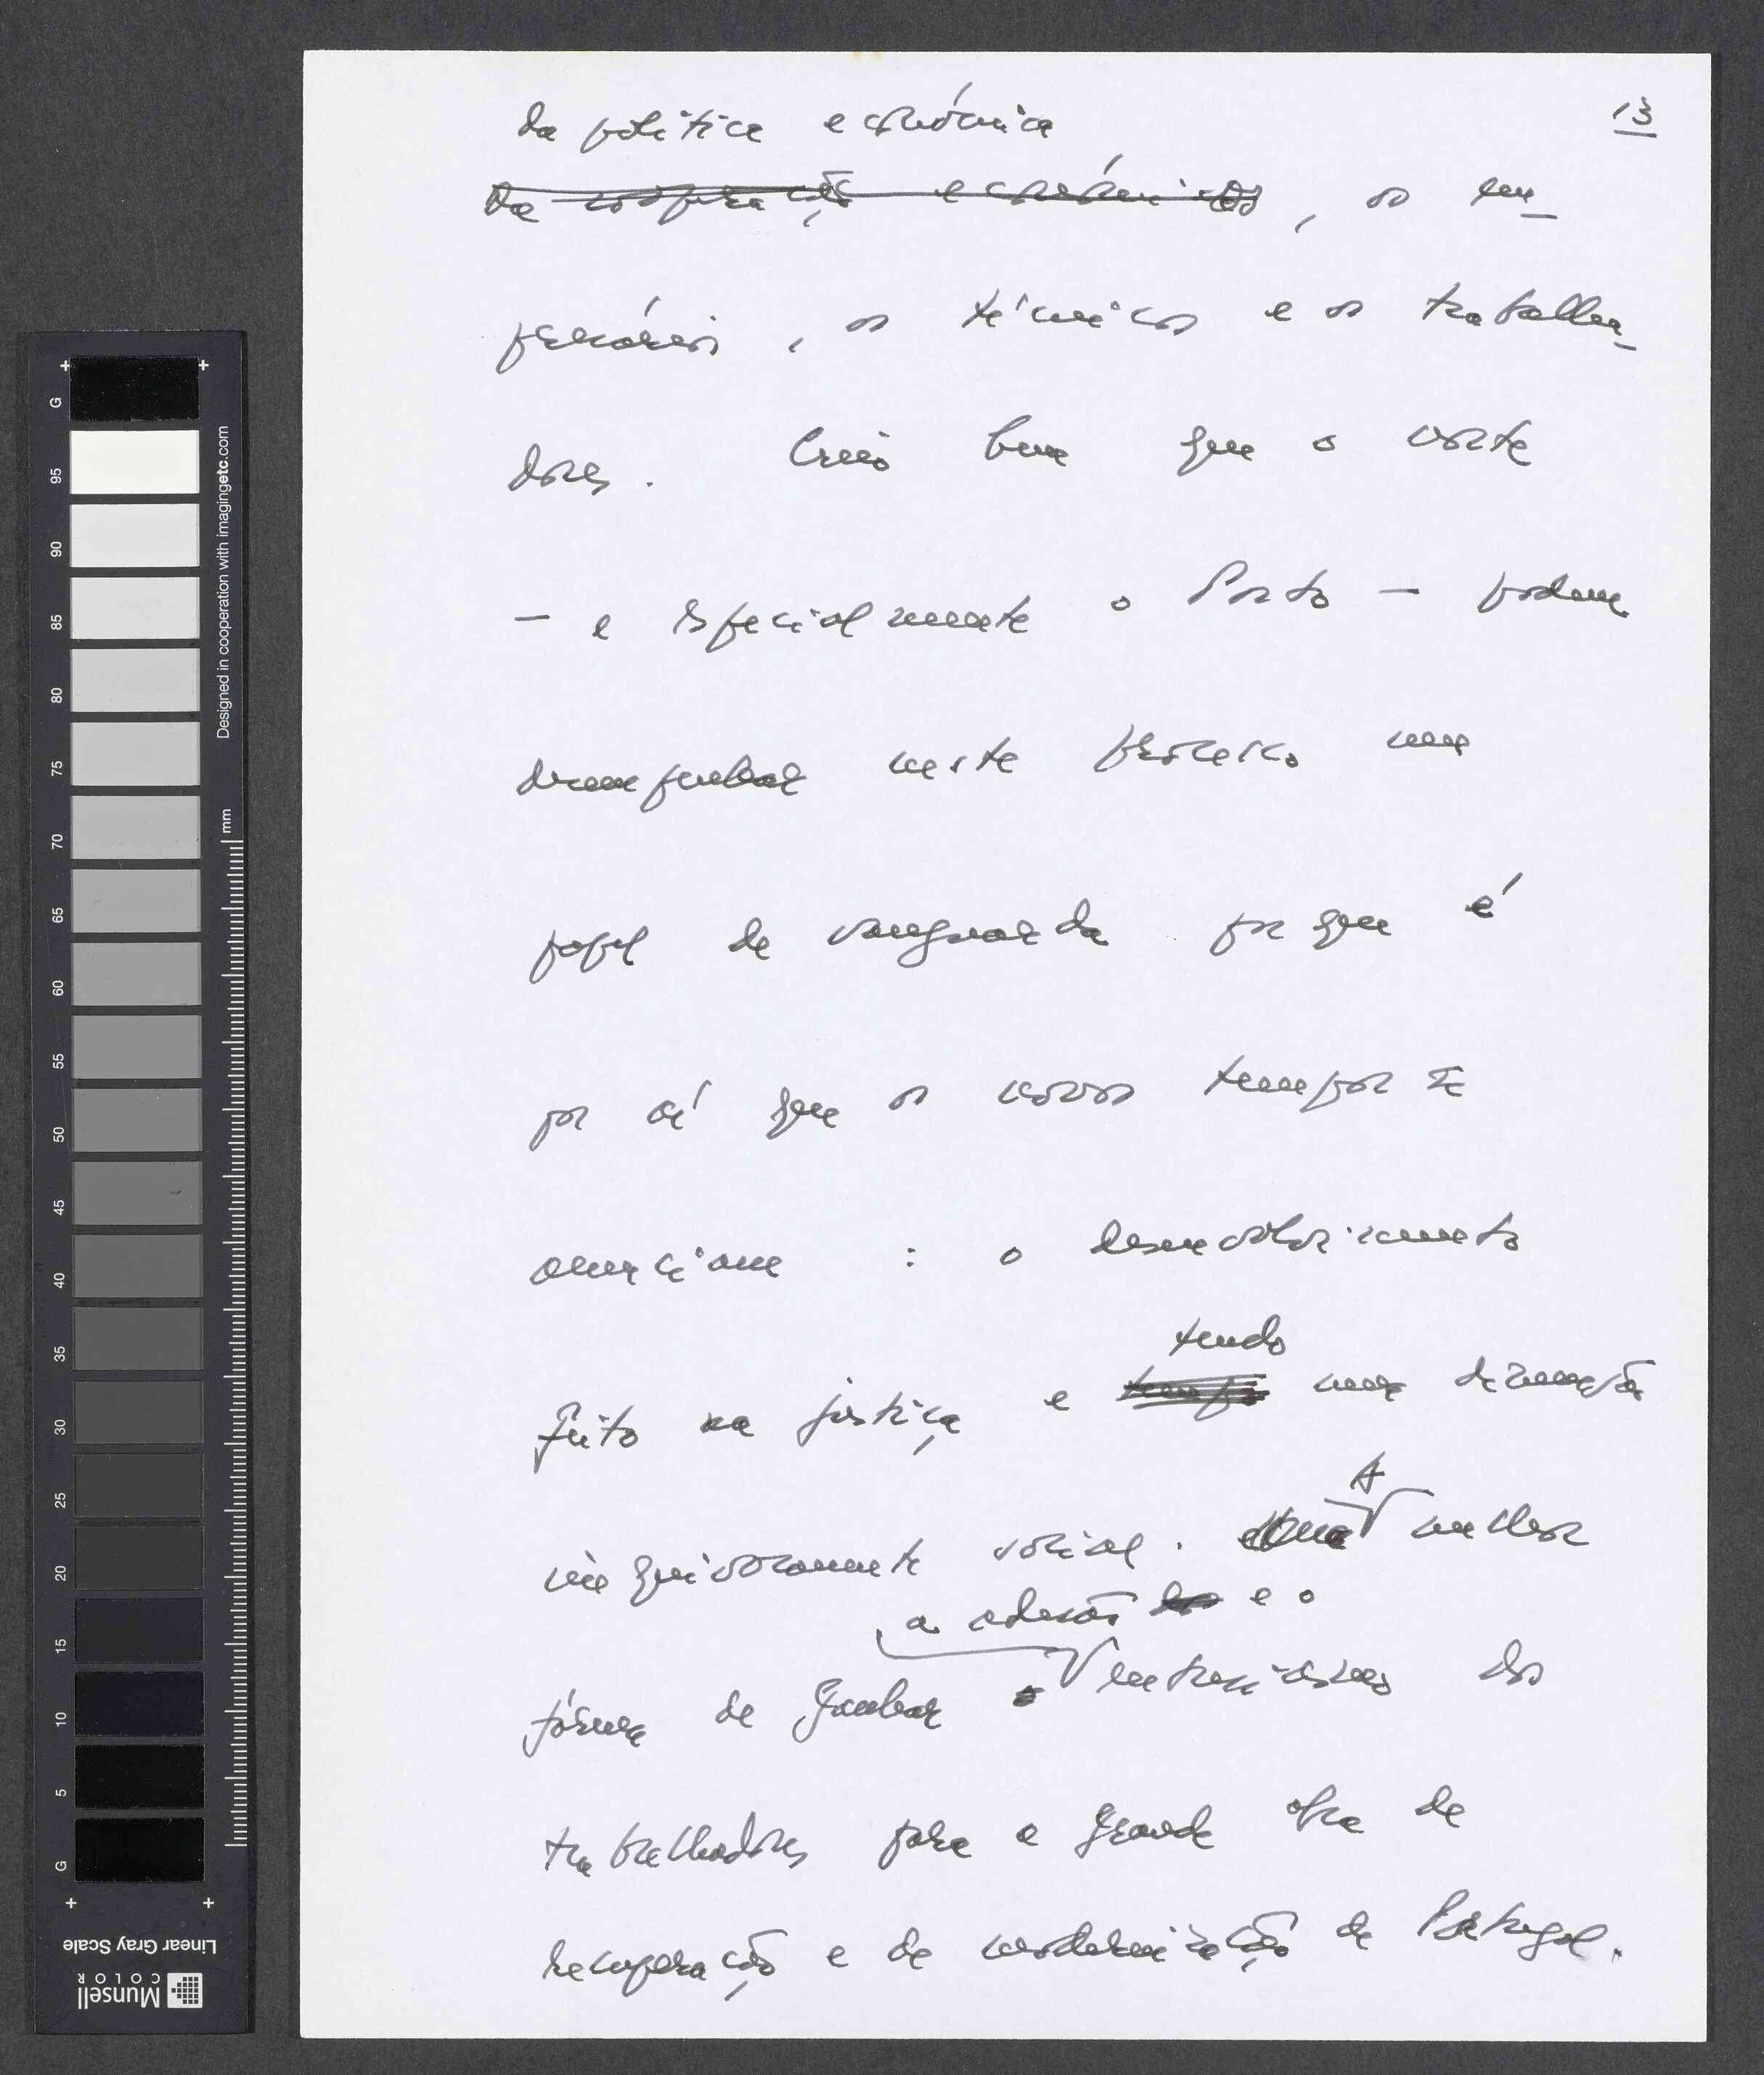 13
da política económica
da cooperação económica, os em_
presários, os técnicos e os trabalha_
dores. Creio bem que o norte
— e especialmente o Porto — podem
desempenhar neste processo um
papel de vanguarda porque é
por aí que os novos tempos se
anunciam : o desenvolvimento
tendo
feito na justiça e uma dimensão
A
inequivocamente social. melhor
a adesão e o
fórma de ganhar o entusiasmo dos
trabalhadores para a grande obra de
recuperação e de modernização de Portugal.
G
95
90
85
80
75
70
65
60
55
50
45
40
35
30
25
20
15
10
5
G
mm
Designed in cooperation with imagingetc.com
Linear Gray Scale
Munsell
COLOR